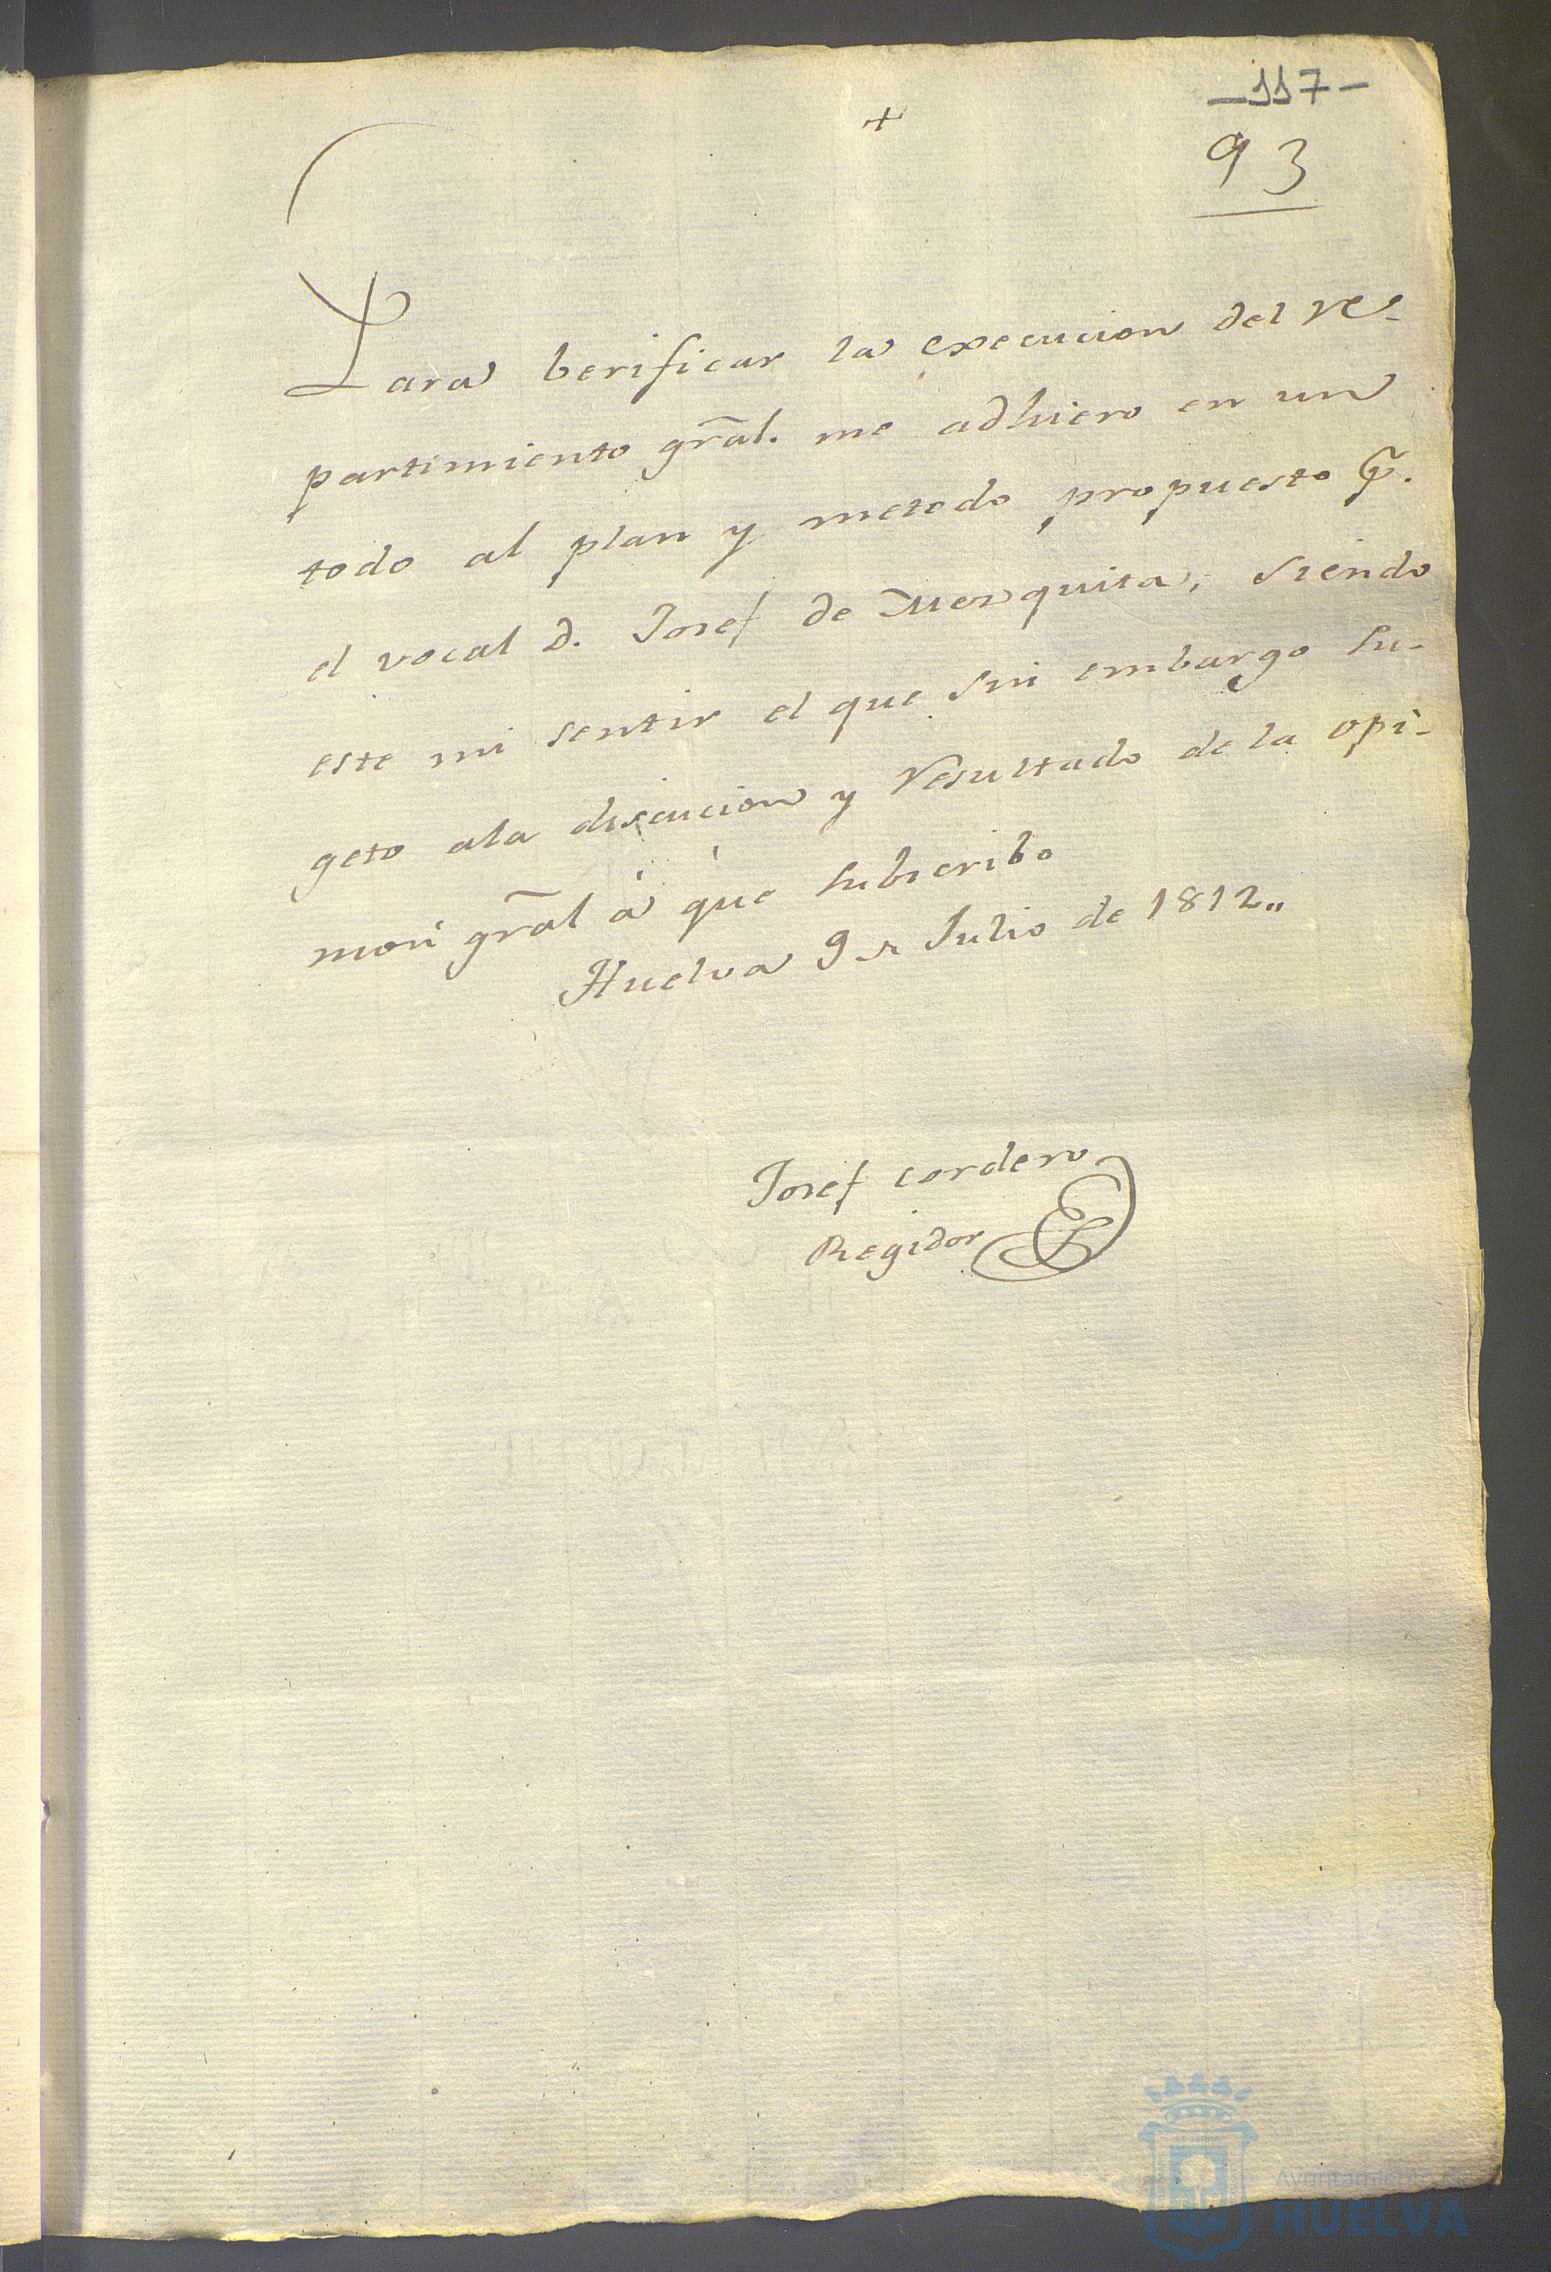 -117-
+
93
Para berificar la execucion del re-
partimiento grãl. me adhiero en un
todo al plan y metodo propuesto p̃r.
el vocal D. Josef de Mezquita, siendo
este mi sentir el que sin embargo su-
geto ala discucion y resultado de la opi-
nion grãl à que subscribo
Huelva 9 de Julio de 1812„
Josef cordero
Regidor
Ayuntamiento de
HUELVA